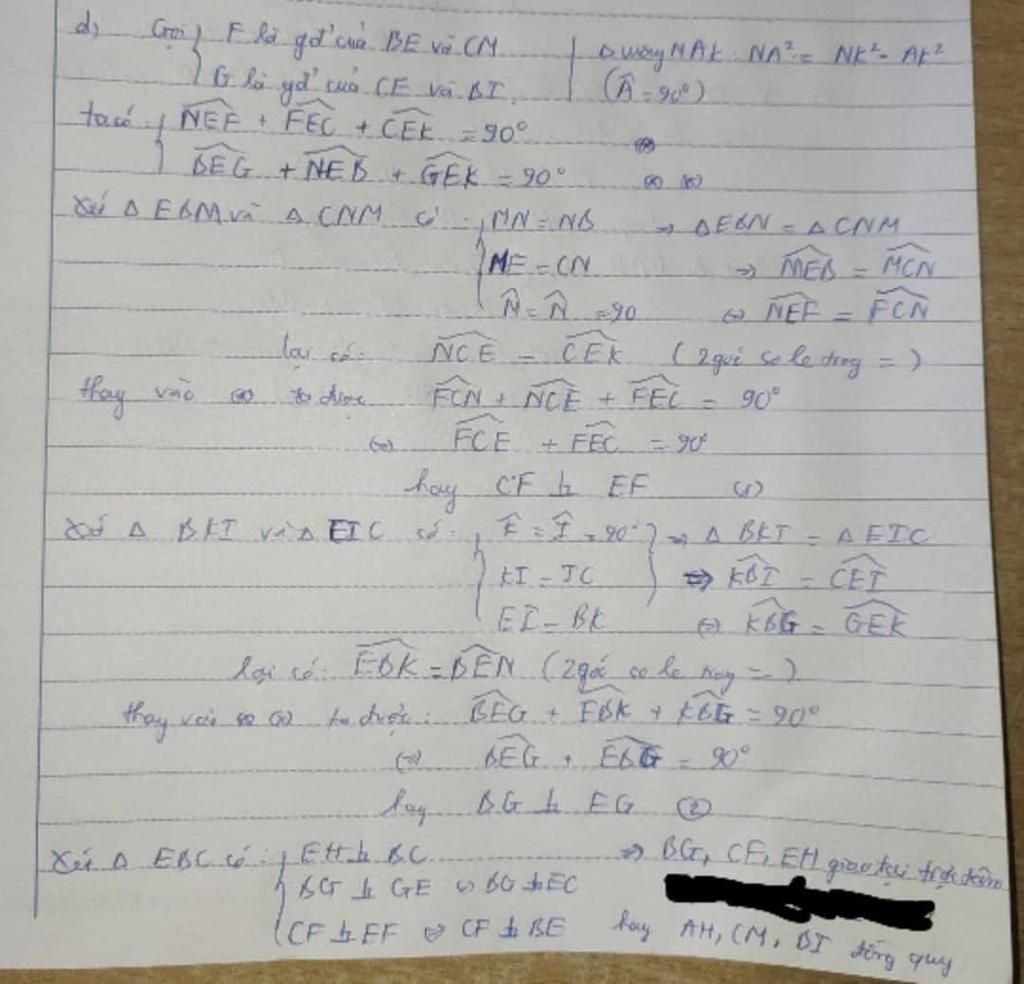 d, Gọi { F là gđ' của BE và CM
G là gđ' của CE và BI
Δ vuông NAK: NA² = NK² - AK²
(Â = 90°)
ta có { NEF + FEC + CEK = 90° (*)
BEG + NEB + GEK = 90° (*) (*)
Xét Δ EBM và Δ CNM có { MN = NB ⇒ ΔEBN = ΔCNM
ME = CN ⇒ MEB = MCN
N̂ = N̂ = 90 ⇔ NEF = FCN
lại có: NCE = CEK (2 góc so le trong = )
thay vào (*) ta được FCN + NCE + FEC = 90°
(=) FCE + FEC = 90°
hay CF ⊥ EF (1)
Xét Δ BKI và Δ EIC có: { K̂ = Î = 90° } ⇒ Δ BKI = Δ EIC
KI = IC ⇒ KBI = CEI
EI = BK (=) KBG = GEK
lại có: EBK = BEN (2 góc so le trong = )
thay vào (*) (*) ta được: BEG + EBK + KBG = 90°
(=) BEG + EBG = 90°
hay BG ⊥ EG (2)
Xét Δ EBC có: { EH ⊥ BC ⇒ BG, CF, EH giao tại trực tâm
BG ⊥ GE ⇔ BG ⊥ EC
CF ⊥ EF ⇔ CF ⊥ BE hay AH, CM, BI đồng quy